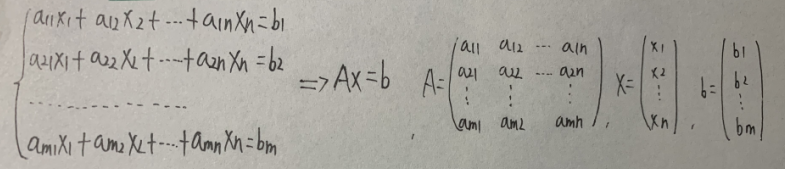 a11x1+a12x2+⋯+a1nxn=b1
a21x1+a22x2+⋯+a2nxn=b2
⋯⋯⋯⋯⋯
am1x1+am2x2+⋯+amnxn=bm
⇒Ax=b
A=(a11 a12 ⋯ a1n
a21 a22 ⋯ a2n
⋮ ⋮ ⋮
am1 am2 amn),
x=(x1
x2
⋮
xn),
b=(b1
b2
⋮
bm)